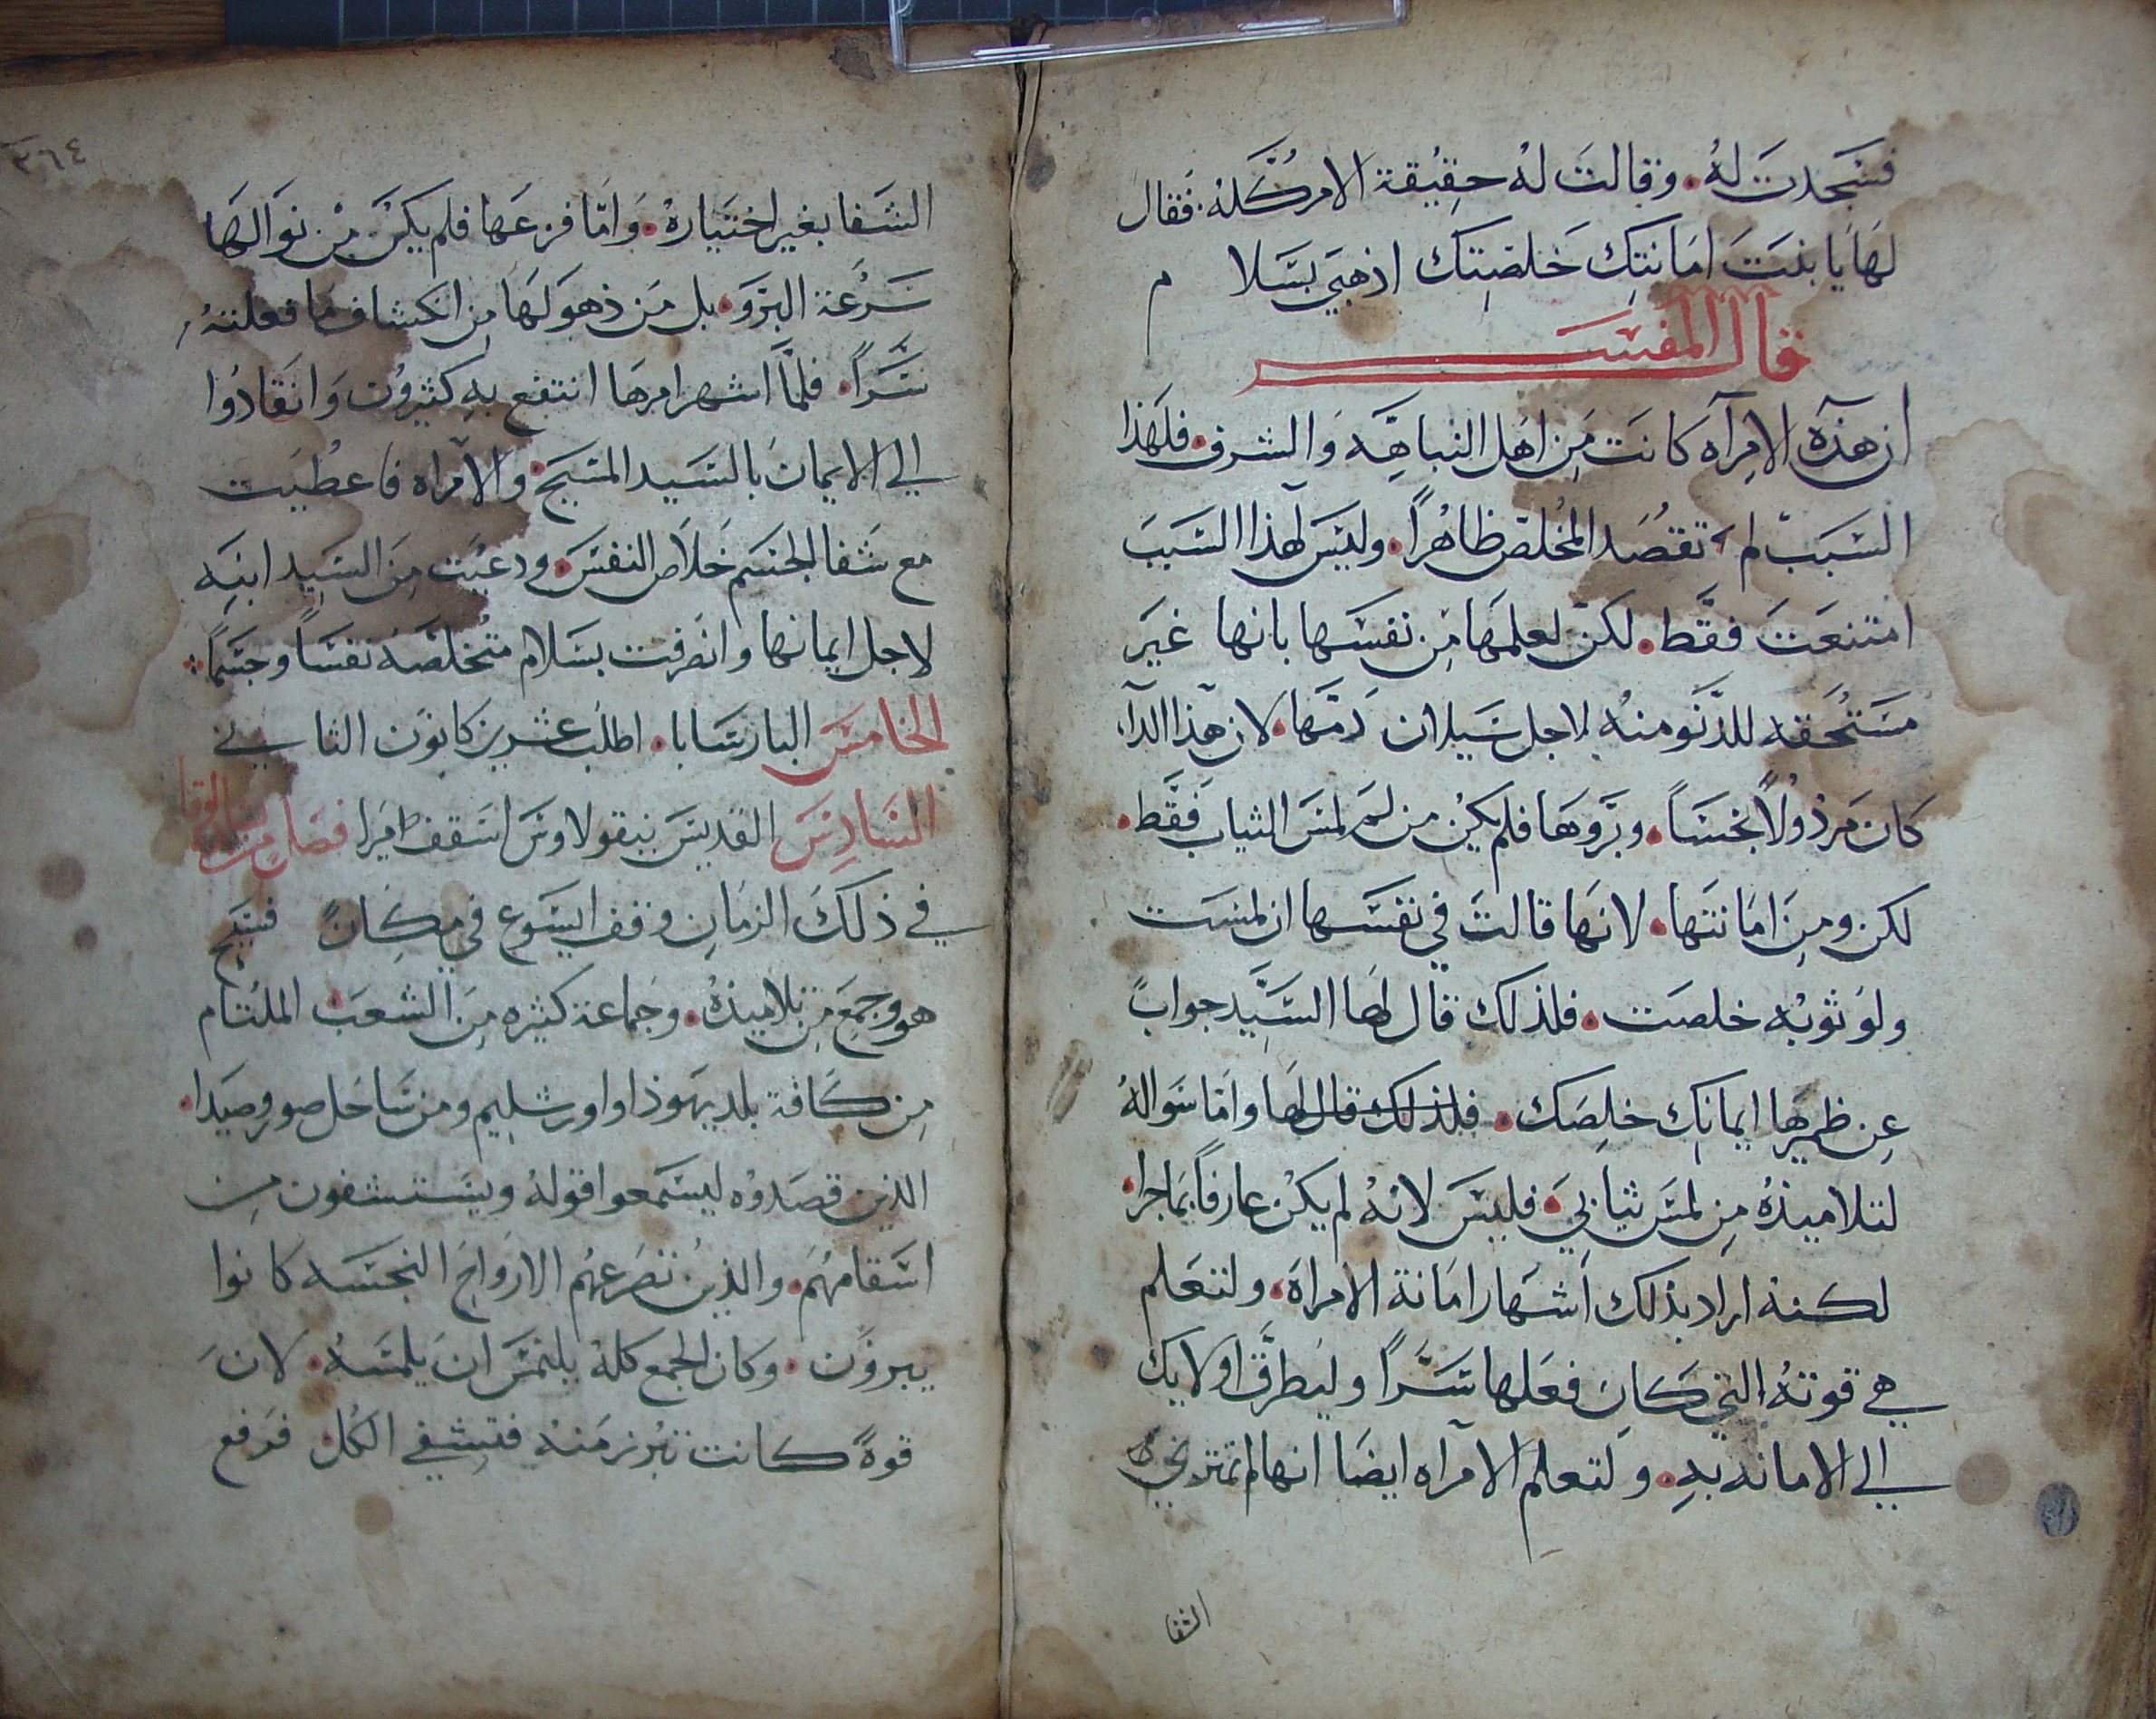 فسجدت له. وقالت له حقيقة الامر كله. فقال
لها يا بنت امانتك خلصتك اذهبي بسلا م
قال المفسر
ان هذه الامراه كانت من اهل النباهه والشرف. فلهذا
السبب لم تقصد المخلص ظاهراً. وليس لهذا السبب
امتنعت فقط. لكن لعلمها من نفسها بانها غير
مستحقه للدنو منه لاجل سيلان دمها. لان هذا الدآ
كان مرذولاً نجساً. وبروها فلم يكن من لمس الثياب فقط.
لكن ومن امانتها. لانها قالت في نفسها ان لمست
ولو ثوبه خلصت. فلذلك قال لها السيد جواب
عن ظميرها ايمانك خلصك. فلذلك قال لها واما سواله
لتلاميذه من لمس ثيابي. فليس لانه لم يكن عارفاً بما جرا.
لكنه اراد بذلك اشهار امانة الامراة. ولتعلم
هي قوته التي كان فعلها سراً وليطرق اولايك
الي الامانه به. ولتعلم الامراه ايضا انها لم
الشفا
٣٦٤
الشفا بغير اختياره. واما فزعها فلم يكن من نوالها
سرعة البرو. بل من ذهولها من انكشاف ما فعلته
سراً. فلما اشهر امرها انتفع به كثيرون وانقادوا
الي الايمان بالسيد المسيح. والامراه فاعطيت
مع شفا الجسم خلاص النفس. ودعيت من السيد ابنه
لاجل ايمانها وانصرفت بسلام متخلصه نفساً وجسماً:
الخامس البار سابا. اطلب عشرين كانون الثاني
السادس القديس نيقولاوس اسقف ميرا فصل من بشارة لوقا
في ذلك الزمان وقف ايسوع في مكان فسيح
هو وجمع من تلاميذه. وجماعة كثيره من الشعب الملتام
من كافة بلد يهوذا واورشليم ومن ساحل صور وصيدا.
الذين قصدوه ليسمعوا قوله ويستشفون من
اسقامهم. والذين تصرعهم الارواح النجسه كانوا
يبرون. وكان الجمع كله يلتمس ان يلمسه. لان
قوة كانت تبرز منه فتشفي الكل فرفع